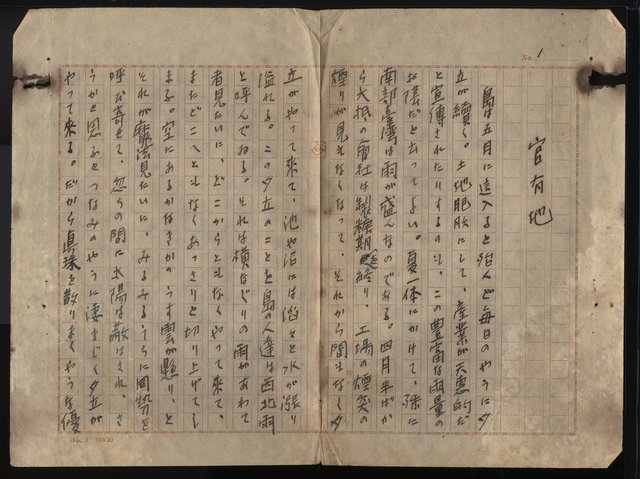 No. 1
官有地
島は五月に這入ると殆んど毎日のやうに夕
立が續く。土地肥沃にして、産業が天惠的だ
と宣傳されたりするのも、この豐富な雨量の
お蔭だとあつてよい。夏一体にかけて、殊に
南部臺灣は雨が盛んなのである。四月半ばか
ら大抵の會社は製糖期を終り、工場の煙突の
煙りが見えなくなつて、それから間もなく夕
立がやつて來て、池や沼には悠々と水が漲り
溢れる。この夕立のことを島の人達は西北雨
と呼んでゐる。それは横なぐりの雨があわて
者見たいに、どこからともなくやつて來て、
またどこへともなくあつさりと切り上げてし
まふ。空にあるかなきかのうす雲が懸り、と
それが魔法見たいに、みるみるうちに同勢を
呼び寄せて、忽ちの間に太陽は蔽はされ、さ
うかと思ふとつなみのやうに凄まじく夕立が
やつて來る。だから真珠を散りまくやうな優
No. 1 10×20